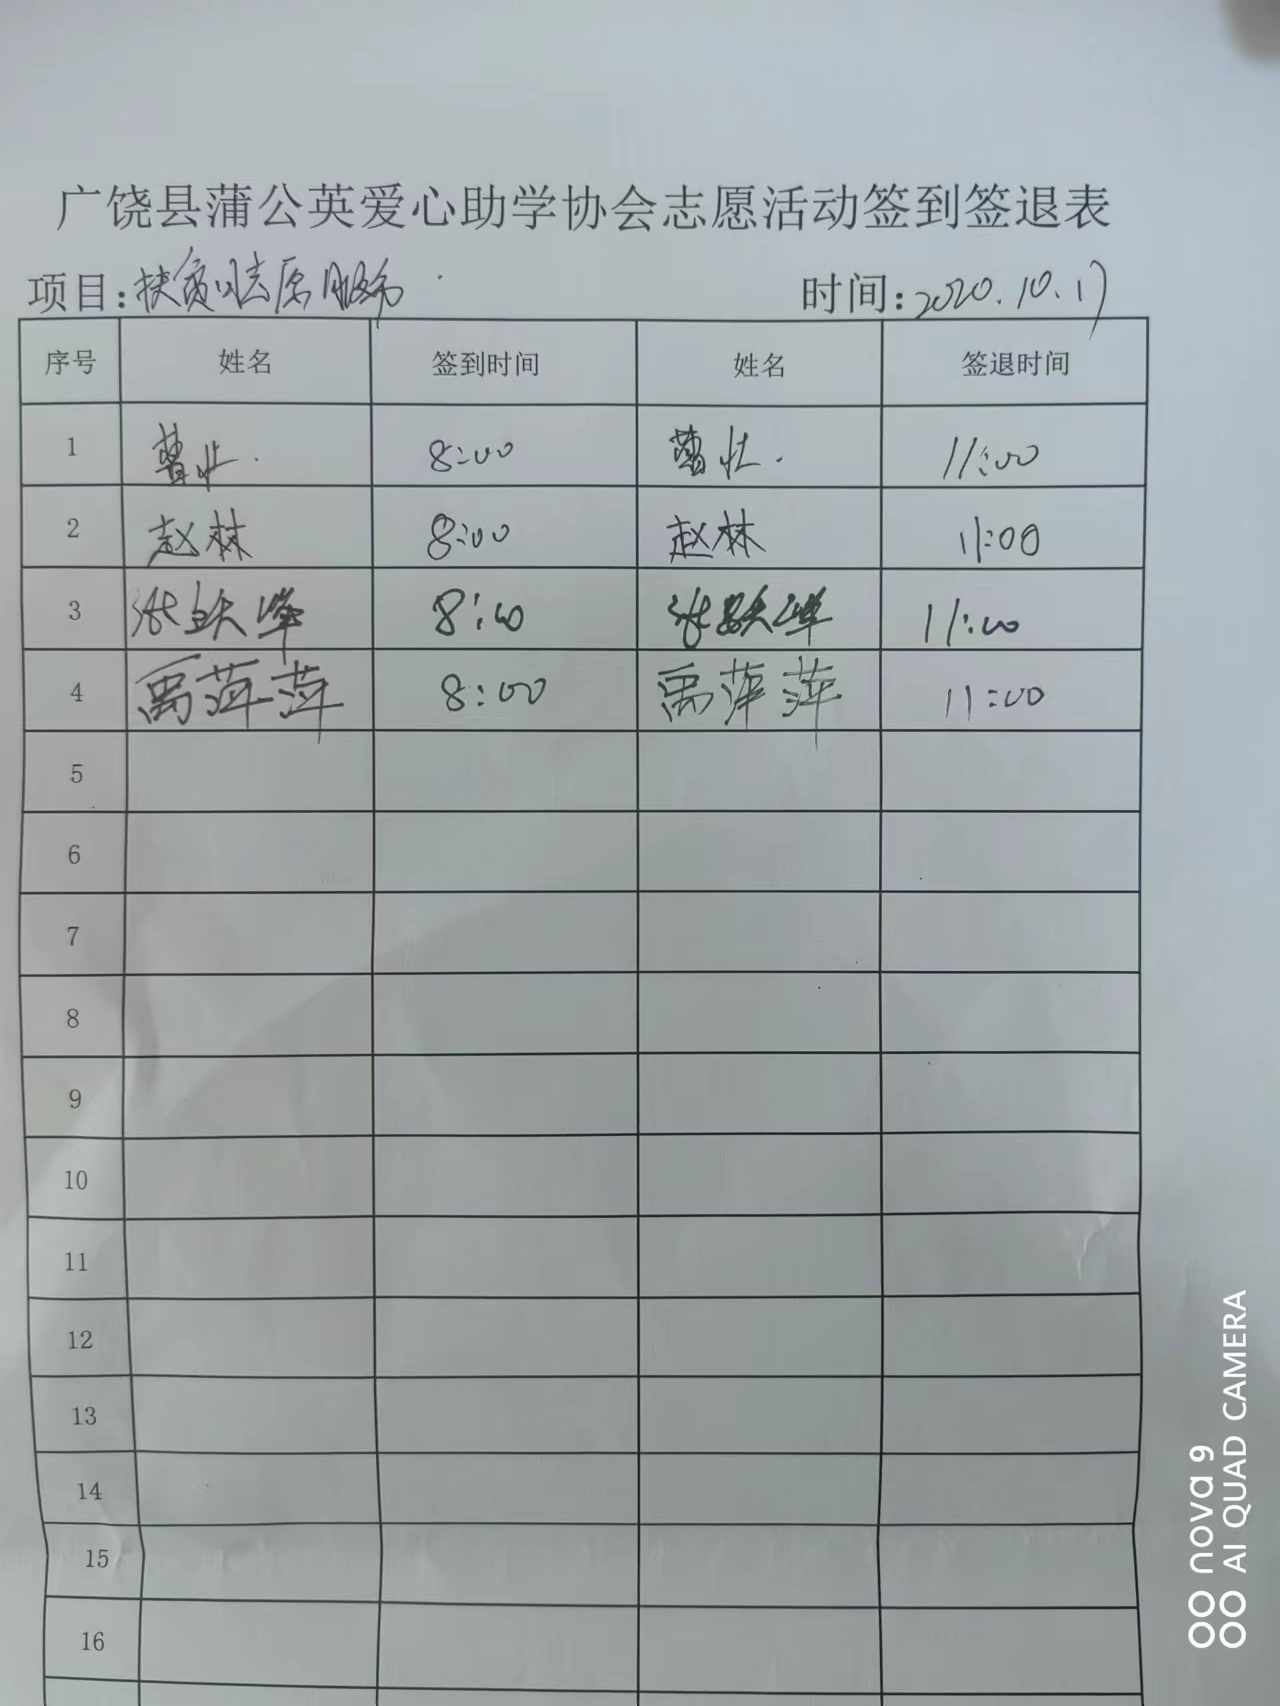 广饶县蒲公英爱心助学协会志愿活动签到签退表
项目:扶贫志愿服务 时间:2020.10.17
序号 姓名 签到时间 姓名 签退时间
1 8:00 11:00
2 赵林 8:00 赵林 11:00
3 8:00 11:00
4 禹萍萍 8:00 禹萍萍 11:00
5
6
7
8
9
10
11
12
13
14
15
16
nova 9
AI QUAD CAMERA